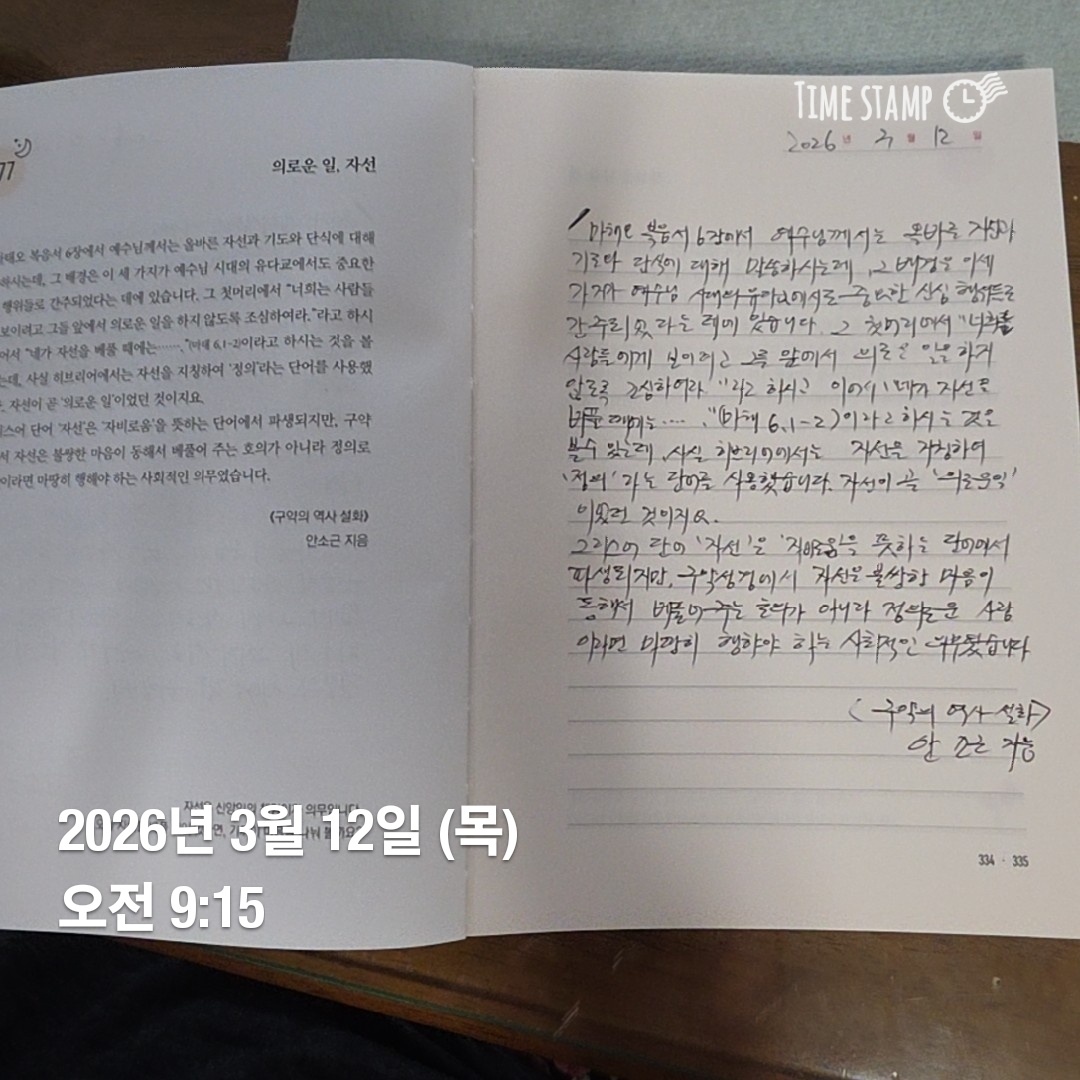 TIME STAMP
2026년 3월 12일
77
의로운 일, 자선
태오 복음서 6장에서 예수님께서는 올바른 자선과 기도와 단식에 대해
하시는데, 그 배경은 이 세 가지가 예수님 시대의 유다교에서도 중요한
행위들로 간주되었다는 데에 있습니다. 그 첫머리에서 “너희는 사람들
보이려고 그들 앞에서 의로운 일을 하지 않도록 조심하여라.”라고 하시
어서 “네가 자선을 베풀 때에는…….”(마태 6,1-2)이라고 하시는 것을 볼
는데, 사실 히브리어에서는 자선을 지칭하여 ‘정의’라는 단어를 사용했
자선이 곧 ‘의로운 일’이었던 것이지요.
리스어 단어 ‘자선’은 ‘자비로움’을 뜻하는 단어에서 파생되지만, 구약
서 자선은 불쌍한 마음이 동해서 베풀어 주는 호의가 아니라 정의로
이라면 마땅히 행해야 하는 사회적인 의무였습니다.
《구약의 역사 설화》
안소근 지음
자선은 신앙인의 의무입니다
마태오 복음서 6장에서 예수님께서는 올바른 자선과
기도와 단식에 대해 말씀하시는데, 그 배경은 이 세
가지가 예수님 시대의 유다교에서도 중요한 신심 행위들로
간주되었다는 데에 있습니다. 그 첫머리에서 "너희들
사람들에게 보이려고 그들 앞에서 의로운 일을 하지
않도록 조심하여라 "라고 하시고 이어서 "네가 자선을
베풀 때에는‥‥ ."(마태 6,1-2)이라고 하시는 것을
볼수 있는데, 사실 히브리어에서는 자선을 지칭하여
'정의' 라는 단어를 사용했습니다. 자선이 곧 '의로운일'
이었던 것이지요.
그리스어 단어 '자선'은 '자비로움'을 뜻하는 단어에서
파생되지만, 구약성경에서 자선은 불쌍한 마음이
동해서 베풀어 주는 호의가 아니라 정의로운 사람
이라면 마땅히 행하야 하는 사회적인 의무였습니다
<구약의 역사 설화>
안 소근 지음
334 · 335
2026년 3월 12일 (목)
오전 9:15